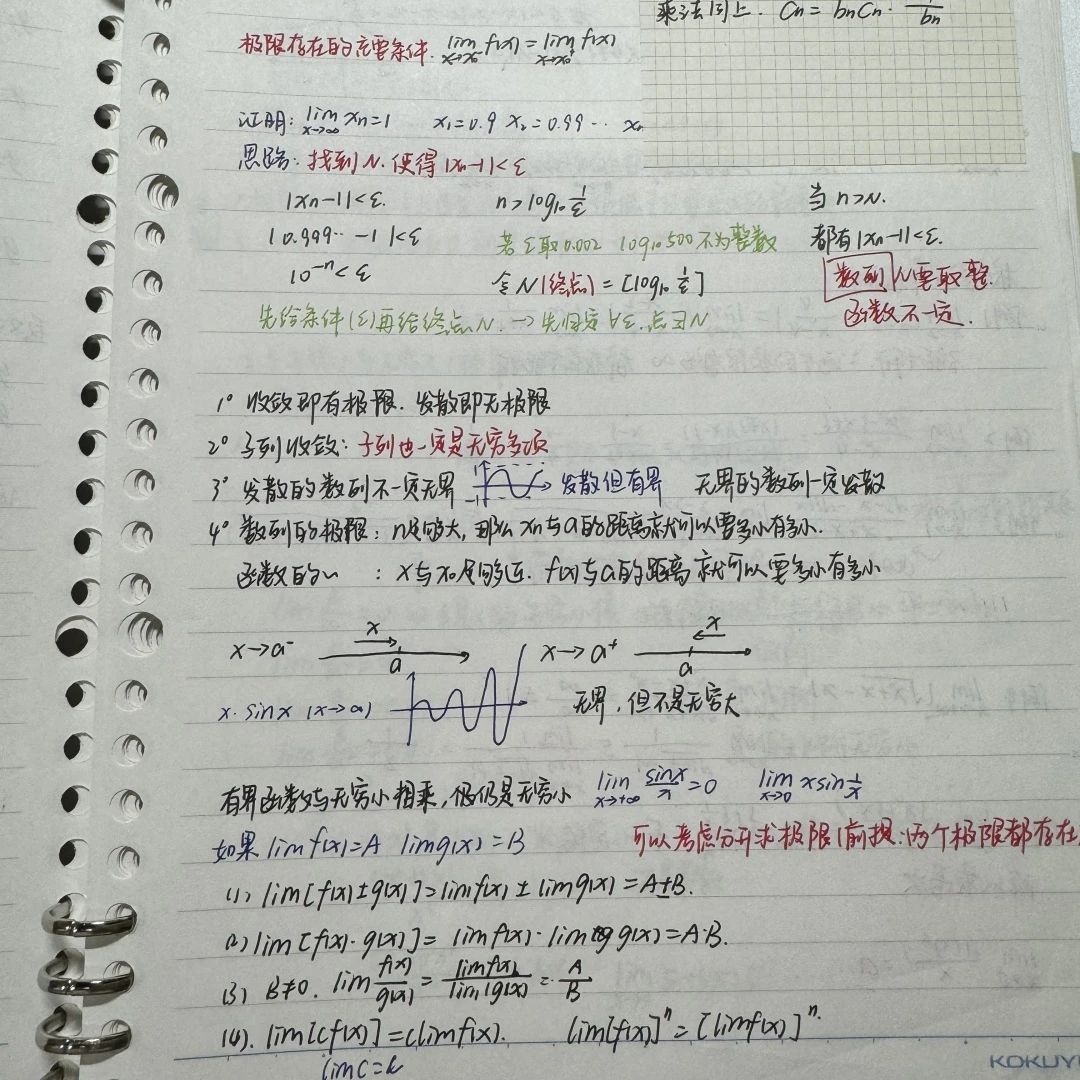 乘法同上. Cn = bnCn · 1/bn
极限存在的充要条件. lim x→x0⁻ f(x) = lim x→x0⁺ f(x)
证明: lim x→∞ xn=1 x1=0.9 x2=0.99 ··· xn
思路: 找到N. 使得 |xn-1|<ε
|xn-1|<ε. n>log10 1/ε 当 n>N.
|0.999··· -1|<ε 若ε取0.002 log10 500 不为整数 都有|xn-1|<ε.
10⁻ⁿ<ε 令N(终点)=[log10 1/ε] 数列 N要取整.
先给条件(ε)再给终点N. → 先固定∀ε. 点∃N 函数不一定.
1° 收敛即有极限. 发散即无极限
2° 子列收敛: 子列也一定是无穷多项
3° 发散的数列不一定无界 发散但有界 无界的数列一定发散
4° 数列的极限: n足够大, 那么 xn与a的距离就可以要多小有多小.
函数的〃 : x与x0足够近. f(x)与a的距离就可以要多小有多小
x→a⁻ x a x→a⁺ x a
x·sinx (x→∞) 无界, 但不是无穷大
有界函数与无穷小相乘, 仍是无穷小 lim x→+∞ sinx/x =0 lim x→0 xsin 1/x
如果 lim f(x)=A lim g(x)=B 可以考虑分开求极限(前提: 两个极限都存在
(1) lim[f(x)±g(x)]=lim f(x) ± lim g(x)=A±B.
(2) lim[f(x)·g(x)]= lim f(x)·lim g(x)=A·B.
(3) B≠0. lim f(x)/g(x) = lim f(x)/lim g(x) = A/B
(4). lim[cf(x)]=c lim f(x). lim[f(x)]ⁿ=[lim f(x)]ⁿ.
lim C=k
KOKUY